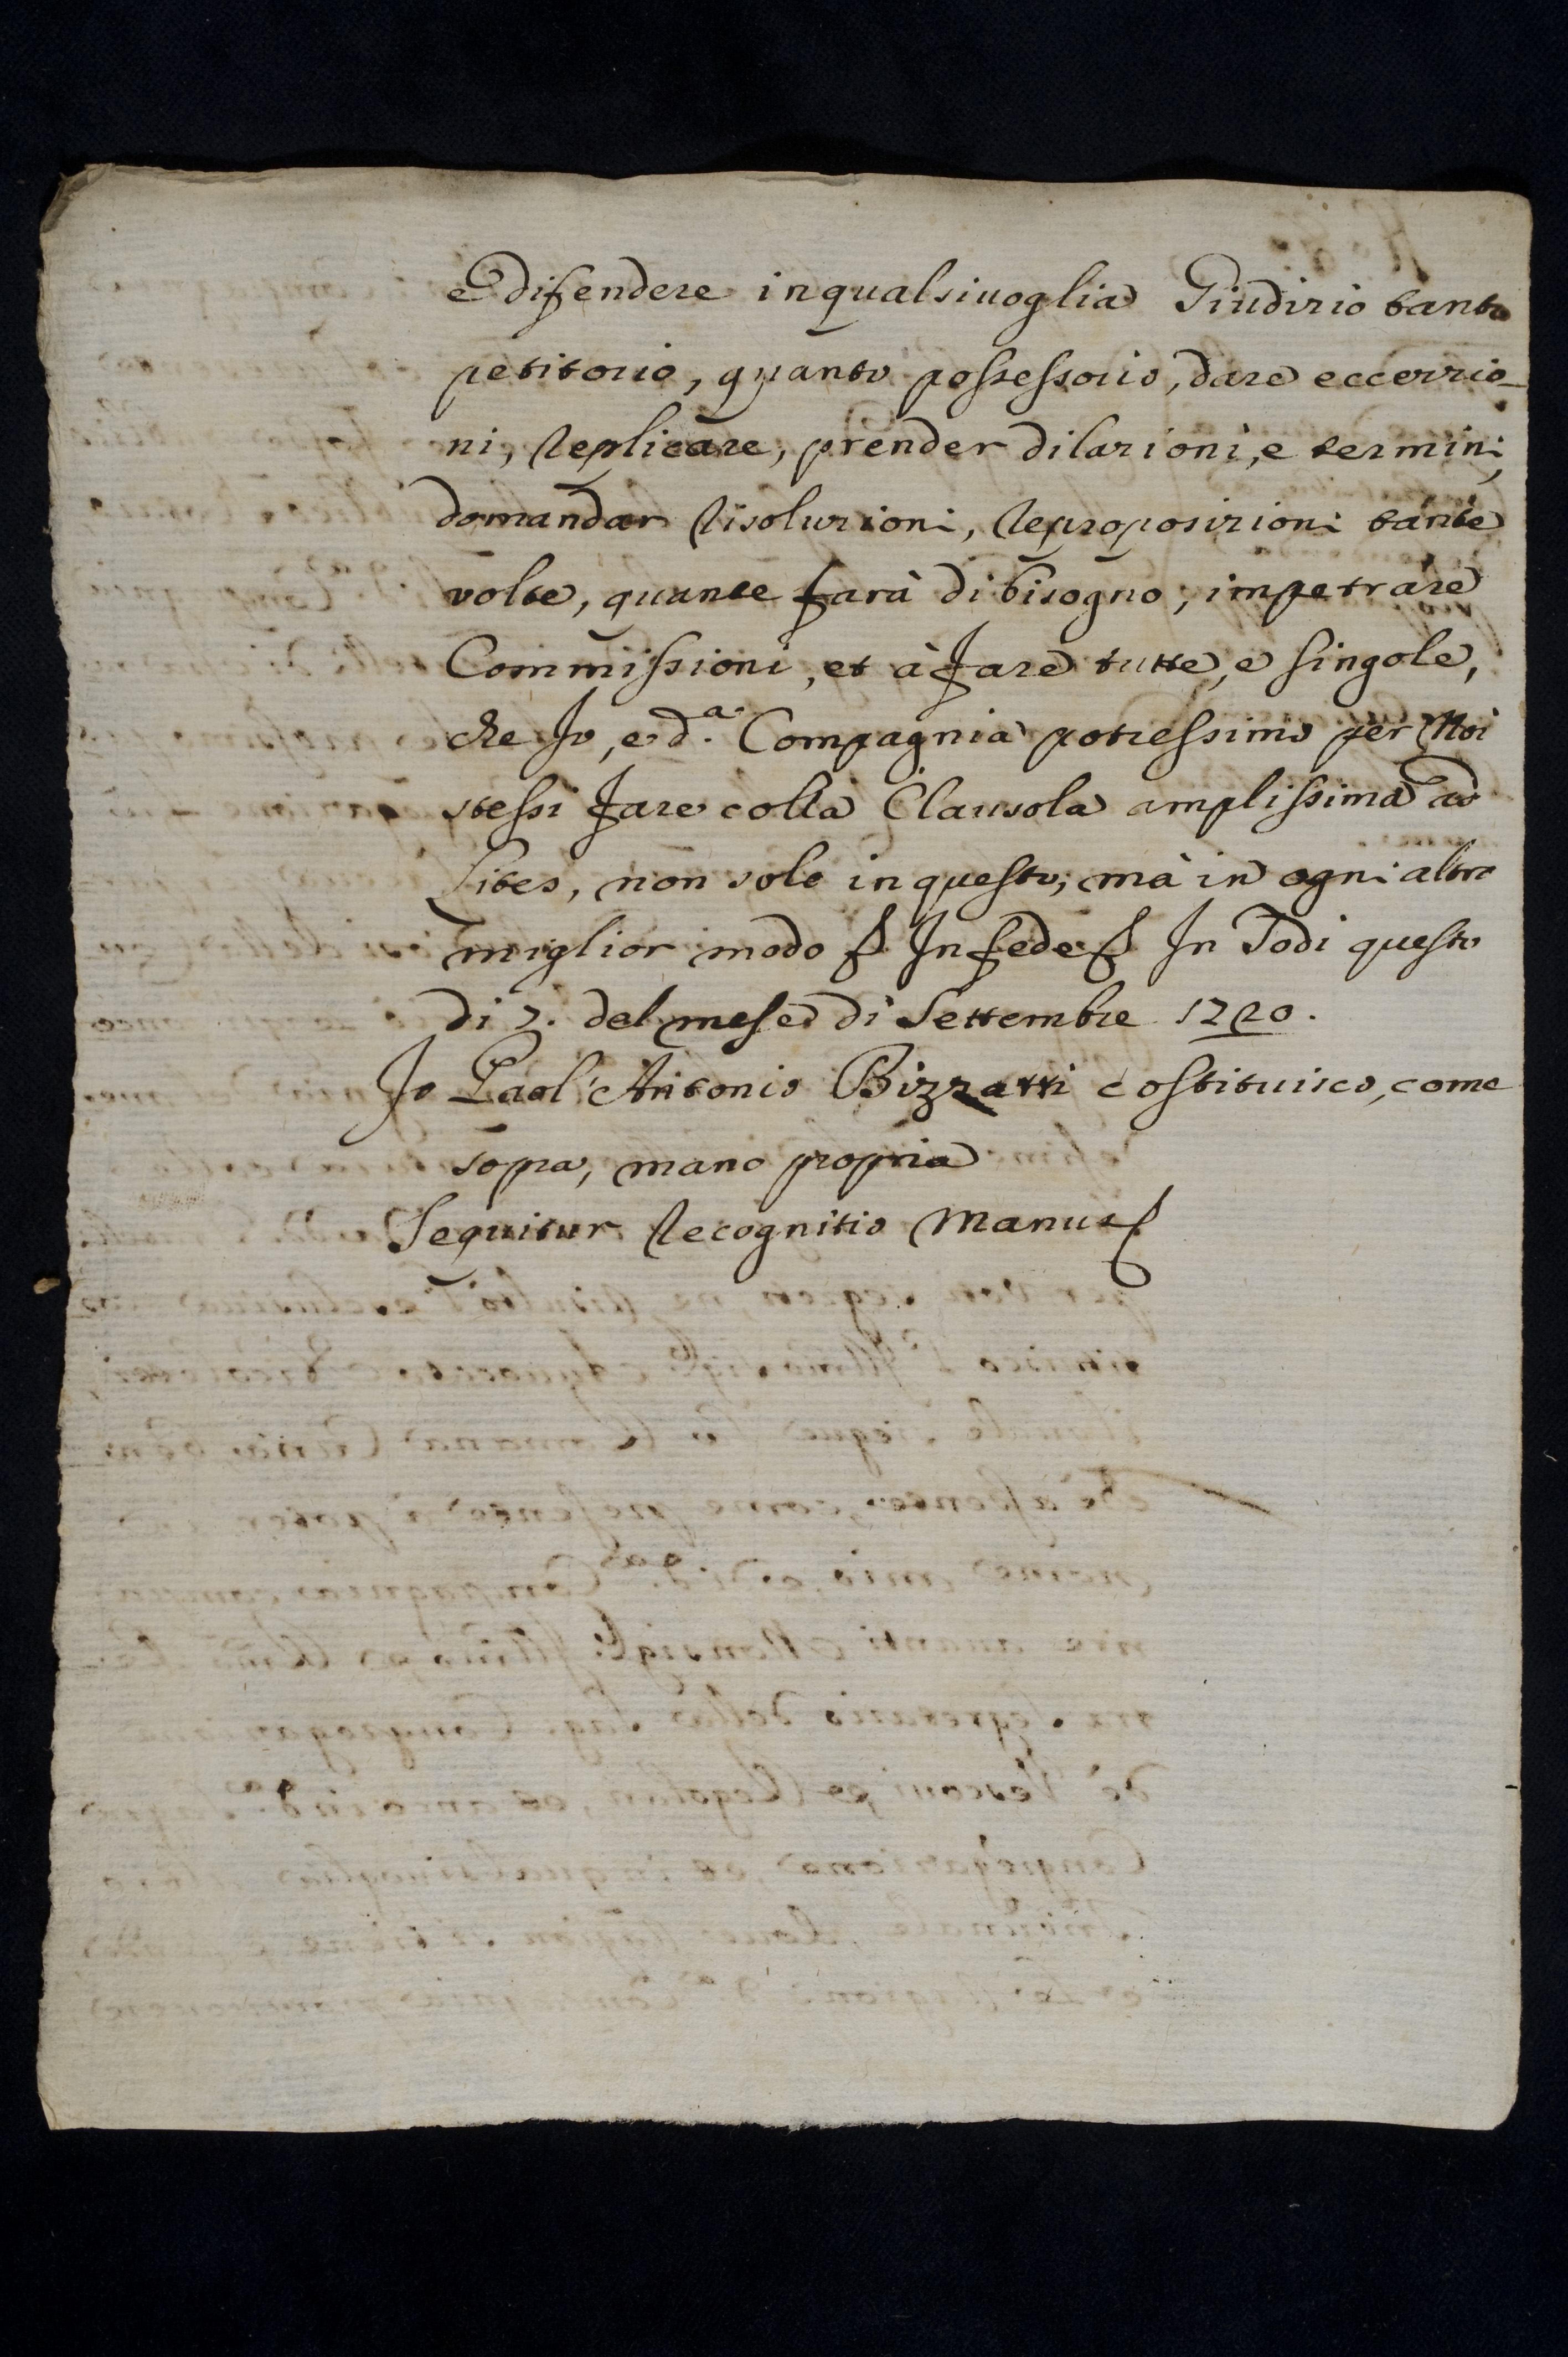 e difendere in qualsiuoglia Giudizio tanto
petitorio, quanto possessorio, dare eccezzio_
ni, replicare, prender dilazioni, e termini,
domandar risoluzioni, reproposizioni tante
volte, quante farà di bisogno, impetrare
Commissioni, et à fare tutte, e singole,
che Io, e d.ª Compagnia potressimo per Noi
stessi fare colla Clausola amplissima ad
Lites, non solo in questo, mà in ogni altro
miglior modo In fede In Todi questo
di 7. del mese di Settembre 1720.
Io Paol' Antonio Bizzarri costituisco, come
sopra, mano propria
Sequitur recognitio manus